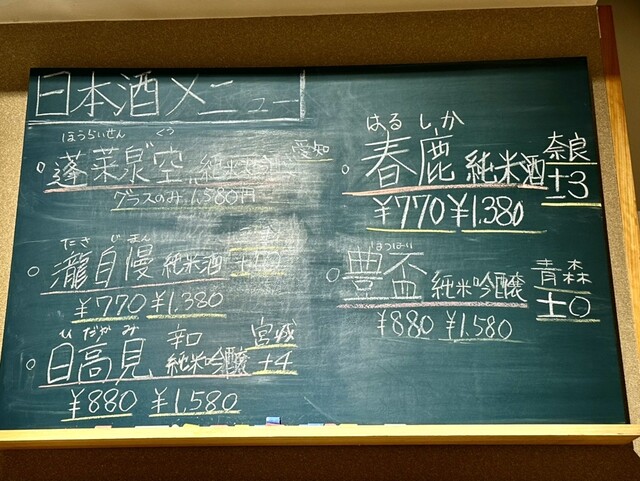 日本酒メニュー
ほうらいせん くう
蓬莱泉 空 純米 愛知
グラスのみ 1,580円
たき じまん
瀧自慢 純米酒
¥770 ¥1,380
ひだかみ
日高見 辛口 純米吟醸 宮城 ±4
¥880 ¥1,580
はるしか
春鹿 純米酒 奈良 ±3
¥770 ¥1,380
ほうはい
豊盃 純米吟醸 青森 ±0
¥880 ¥1,580